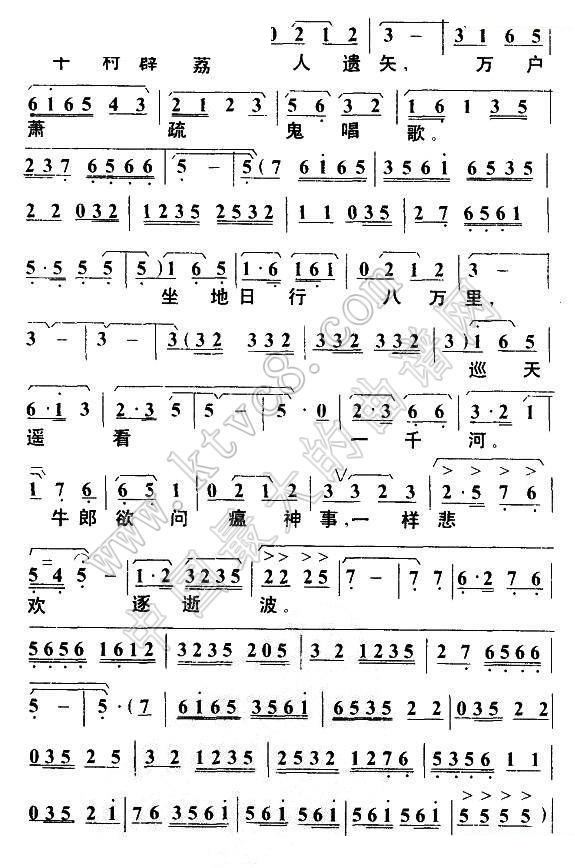 0 2 1 2 | 3 - | 3 1 6 5
千 村 薜 荔 人 遗 矢, 万 户
6 1 6 5 4 3 | 2 1 2 3 | 5 6 3 2 | 1 6 1 3 5
萧 疏 鬼 唱 歌。
2 3 7 6 5 6 6 | 5 - | 5 ( 7 6 1 6 5 | 3 5 6 1 6 5 3 5
2 2 0 3 2 | 1 2 3 5 2 5 3 2 | 1 1 0 3 5 | 2 7 6 5 6 1
5 · 5 5 5 | 5 ) 1 6 5 | 1 · 6 1 6 1 | 0 2 1 2 | 3 -
坐 地 日 行 八 万 里,
3 - | 3 - | 3 ( 3 2 3 3 2 | 3 3 2 3 3 2 | 3 ) 1 6 5
巡 天
6 · 1 3 | 2 · 3 5 | 5 - | 5 · 0 | 2 · 3 6 6 | 3 · 2 1
遥 看 一 千 河。
1 7 6 | 6 5 1 | 0 2 1 2 | 3 3 2 3 | 2 · 5 7 6
牛 郎 欲 问 瘟 神 事, 一 样 悲
5 4 5 - | 1 · 2 3 2 3 5 | 2 2 2 5 | 7 - | 7 7 | 6 · 2 7 6
欢 逐 逝 波。
5 6 5 6 1 6 1 2 | 3 2 3 5 2 0 5 | 3 2 1 2 3 5 | 2 7 6 5 6 6
5 - | 5 · ( 7 | 6 1 6 5 3 5 6 1 | 6 5 3 5 2 2 | 0 3 5 2 2
0 3 5 2 5 | 3 2 1 2 3 5 | 2 5 3 2 1 2 7 6 | 5 3 5 6 1 1
0 3 5 2 1 | 7 6 3 5 6 1 | 5 6 1 5 6 1 | 5 6 1 5 6 1 | 5 5 5 5 )
www.ktvc8.com
中国最大的曲谱网